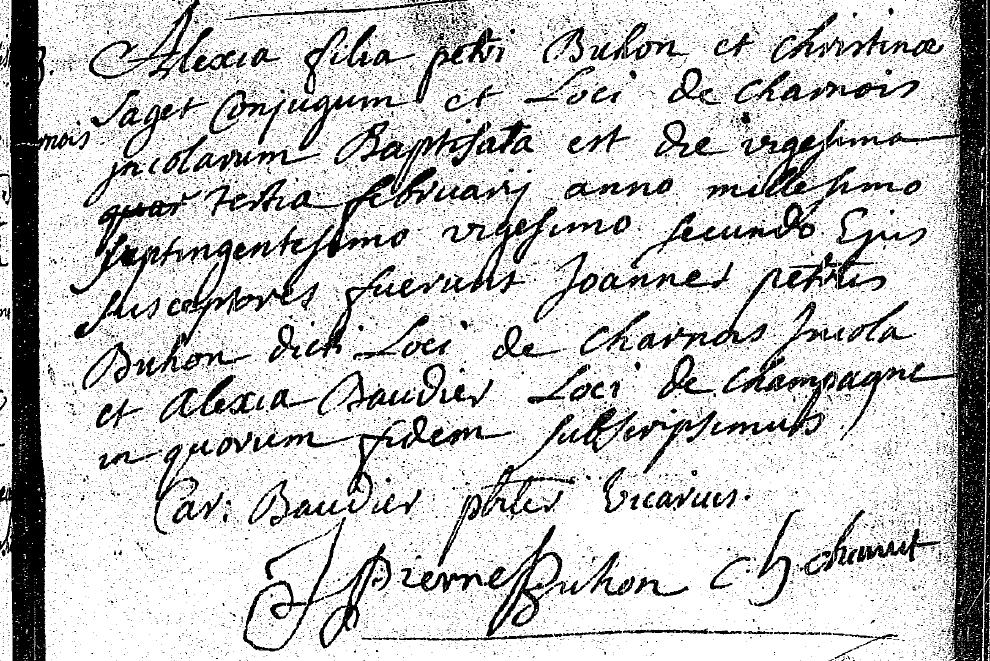 Alexia filia petri Buhon et christinæ
saget Conjugum et Loci de charnois
jncolarum Baptisata est die vigesima
quar tertia februarij anno millesimo
septingentesimo vigesimo secundo Ejus
susceptores fuerunt Joannes petrus
Buhon dicti Loci de charnois Jncola
et Alexia Baudier Loci de champagne
in quorum fidem subscripsimus
Car: Baudier pbter vicarius.
J Pierre Buhon